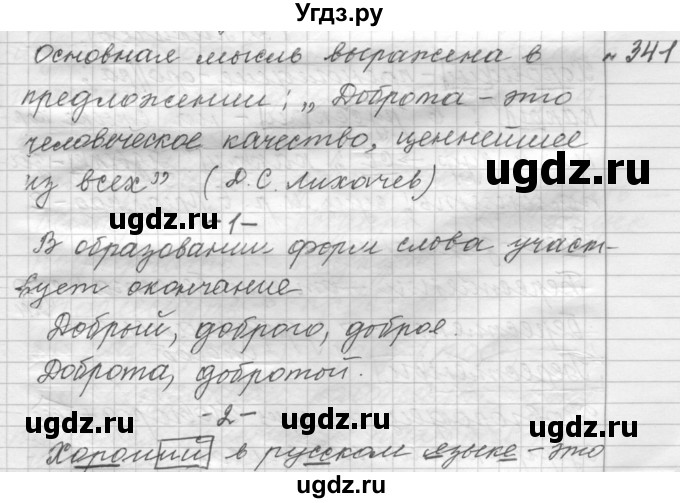 Угдз.ру
Основная мысль выражена в № 341
предложении: „Доброта - это
человеческое качество, ценнейшее
из всех” (Д.С. Лихачев)
ugdz.ru
ugdz.ru ugdz.ru
-1-
В образовании форм слова участ-
вует окончание
ugdz.ru
Добрый, доброго, доброе.
Доброта, добротой.
ugdz.ru ugdz.ru ugdz.ru
-2-
Хороший в русском языке - это
ugdz.ru ugdz.ru